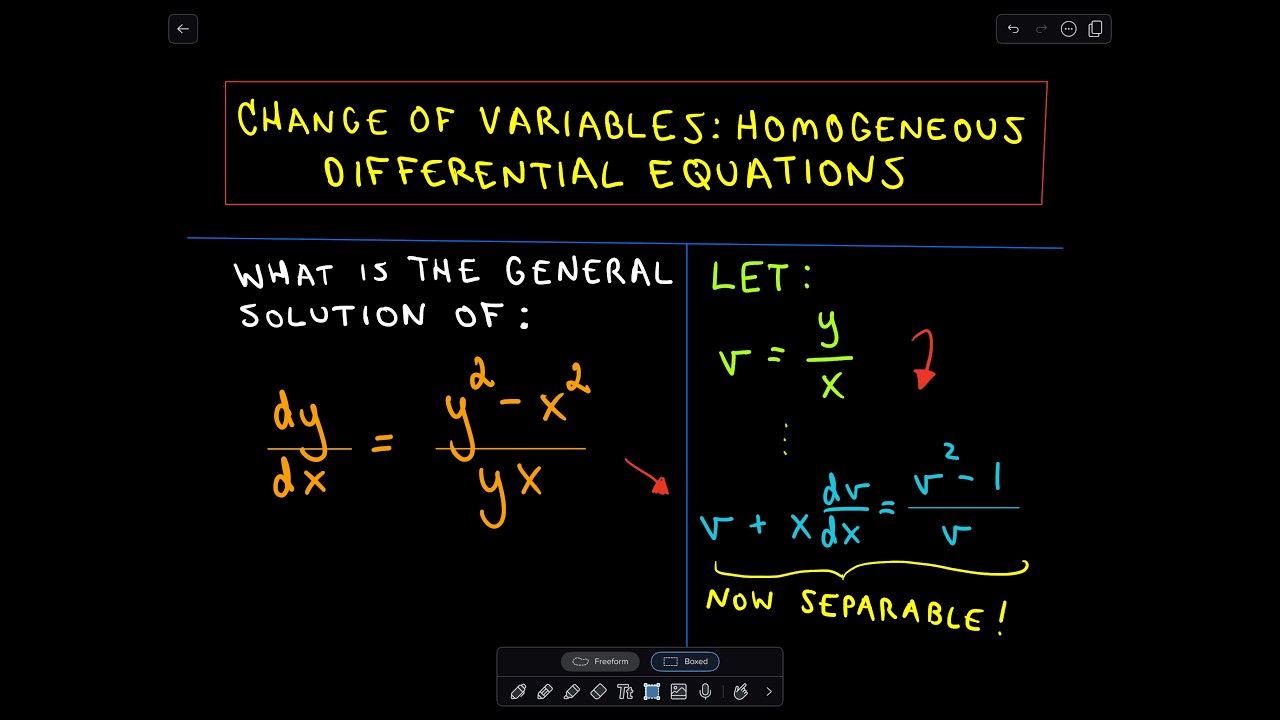 CHANGE OF VARIABLES: HOMOGENEOUS
DIFFERENTIAL EQUATIONS
WHAT IS THE GENERAL
SOLUTION OF:
dy/dx = (y² - x²)/(yx)
LET:
v = y/x
⋮
v + x dv/dx = (v² - 1)/v
NOW SEPARABLE!
Freeform Boxed
Tt